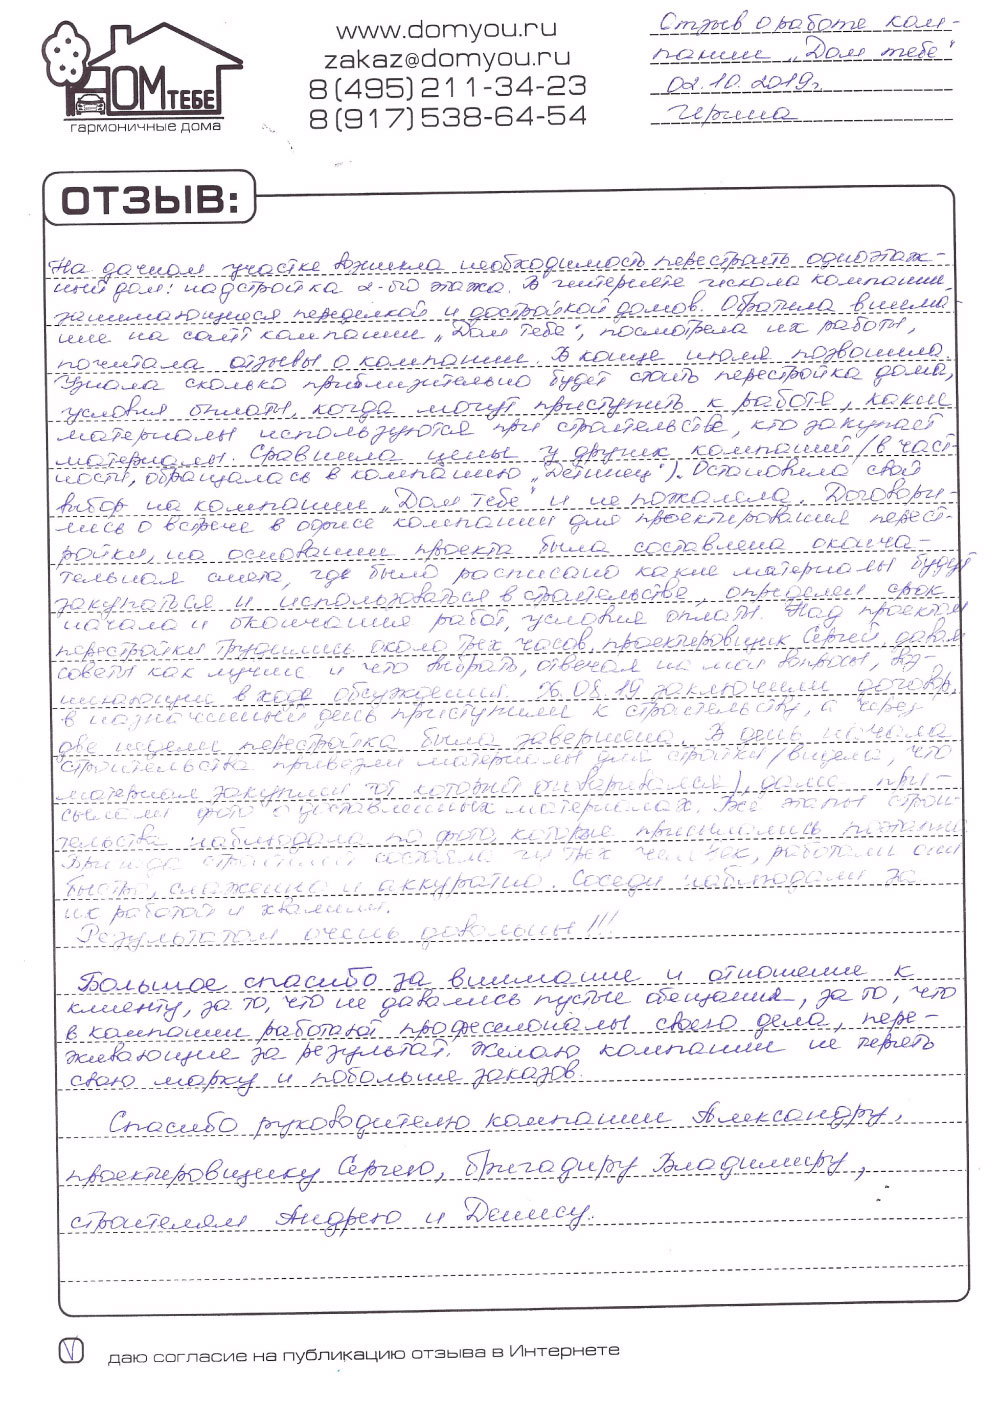 www.domyou.ru
zakaz@domyou.ru
8(495)211-34-23
8(917)538-64-54
ДОМ ТЕБЕ
гармоничные дома
Отзыв о работе ком-
пании „Дом тебе"
02.10.2019г
Ирина
ОТЗЫВ:
На дачном участке возникла необходимость перестроить одноэтаж-
ный дом: надстройка 2-ого этажа. В интернете искала компании,
занимающиеся переделкой и достройкой домов. Обратила внима-
ние на сайт компании „Дом тебе", посмотрела их работы,
почитала отзывы о компании. В конце июля позвонила.
Узнала сколько приблизительно будет стоить перестройка дома,
условия оплаты, когда могут приступить к работе, какие
материалы используются при строительстве, кто закупает
материалы. Сравнила цены у других компаний (в част-
ности, обращалась в компанию „Детинец"). Остановила свой
выбор на компании „Дом тебе" и не пожалела. Договори-
лись о встрече в офисе компании для проектирования перест-
ройки, на основании проекта была составлена оконча-
тельная смета, где было расписано какие материалы будут
закупаться и использоваться в строительстве, определен срок
начала и окончания работ, условия оплаты. Над проектом
перестройки трудились около трех часов, проектировщик Сергей, давал
советы как лучше и что выбрать, отвечал на мои вопросы, воз-
никающии в ходе обсуждения. 26.08.19 заключили договор,
в назначенный день приступили к строительству, а через
две недели перестройка была завершена. В день начала
строительства привезли материалы для стройки (видела, что
материал закупили тот который оговаривался), даже при-
сылали фото о доставленных материалах. Все этапы строи-
тельства наблюдала по фото, которые присылались поэтапно
Бригада строителей состояла из трех человек, работали они
быстро, слаженно и аккуратно. Соседи наблюдали за
их работой и хвалили.
Результатом очень довольны!!!
Большое спасибо за внимание и отношение к
клиенту, за то, что не давались пустые обещания, за то, что
в компании работают профессионалы своего дела, пере-
живающие за результат. Желаю компании не терять
свою марку и побольше заказов.
Спасибо руководителю компании Александру,
проектировщику Сергею, бригадиру Владимиру,
строителям Андрею и Денису.
V даю согласие на публикацию отзыва в Интернете